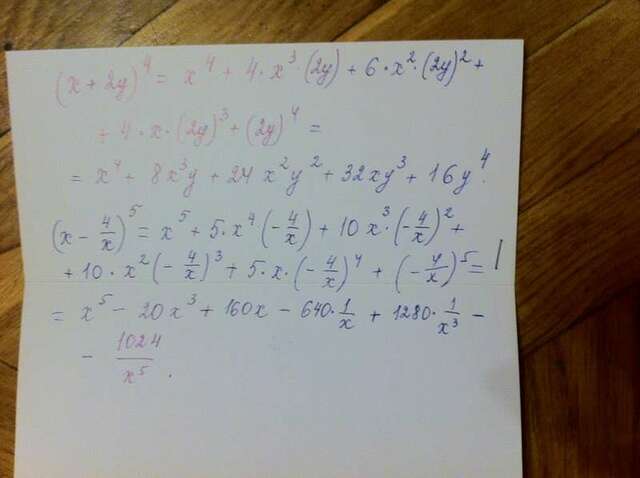 (x + 2y)⁴ = x⁴ + 4·x³·(2y) + 6·x²·(2y)² +
+ 4·x·(2y)³ + (2y)⁴ =
= x⁴ + 8x³y + 24x²y² + 32xy³ + 16y⁴.
(x - 4/x)⁵ = x⁵ + 5·x⁴(-4/x) + 10x³·(-4/x)² +
+ 10·x²(-4/x)³ + 5·x·(-4/x)⁴ + (-4/x)⁵ =
= x⁵ - 20x³ + 160x - 640·1/x + 1280·1/x³ -
- 1024/x⁵.